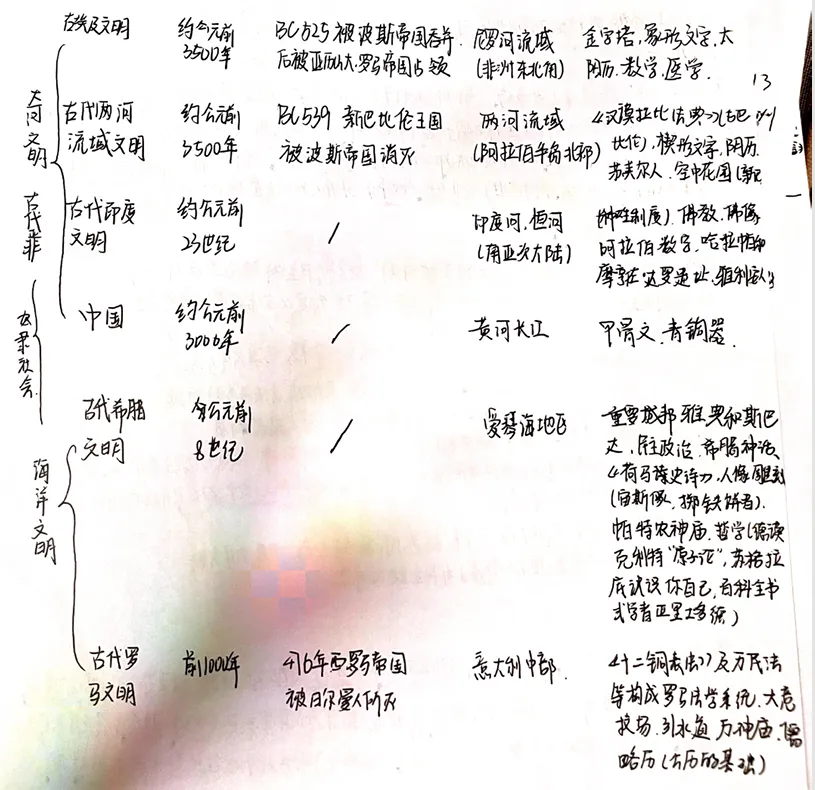 古埃及文明 约公元前 BC525被波斯帝国吞并 尼罗河流域 金字塔,象形文字,太
3500年 后被亚历山大、罗马帝国占领 (非洲东北角) 阳历、数学、医学.
13
大河文明
古代两河 约公元前 BC539 新巴比伦王国 两河流域 《汉谟拉比法典》(古巴
流域文明 3500年 被波斯帝国消灭 (阿拉伯半岛北部) 比伦),楔形文字,阴历
苏美尔人、空中花园(新
古代非
古代印度 约公元前 / 印度河,恒河 (种姓制度).佛教,佛像
文明 23世纪 (南亚次大陆) 阿拉伯数字,哈拉帕和
摩亨佐·达罗遗址,雅利安人
中国 约公元前 / 黄河长江 甲骨文、青铜器.
3000年
古代希腊 公元前 / 爱琴海地区 重要城邦雅典和斯巴
文明 8世纪 达,民主政治、希腊神话、
《荷马史诗》,人像雕刻
(宙斯像、掷铁饼者).
海洋文明
帕特农神庙.哲学(德谟
克利特"原子论",苏格拉
底认识你自己,百科全书
式学者亚里士多德)
古代罗 前1000年 476年西罗马帝国 意大利中部. 《十二铜表法》及万民法
马文明 被日尔曼人所灭 等构成罗马法学系统、大竞
技场.引水道 万神庙.儒
略历(公历的基础)